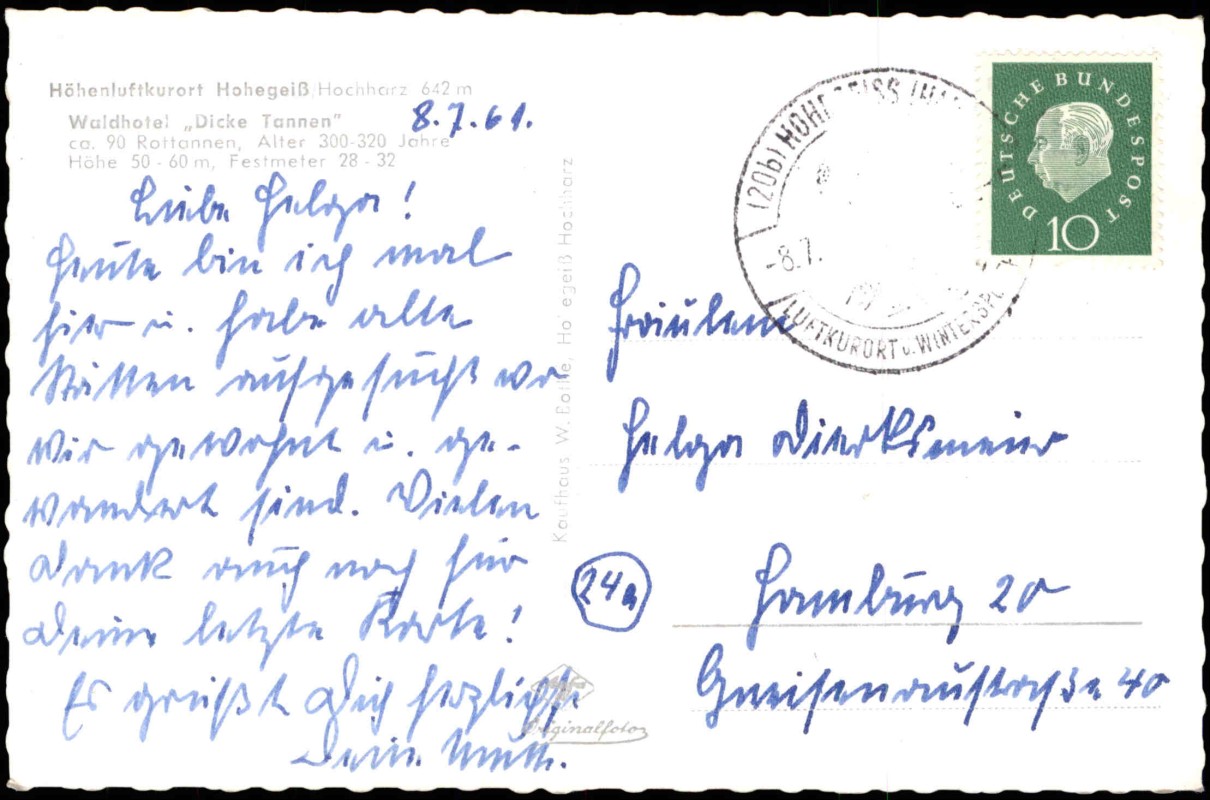 Höhenluftkurort Hohegeiß/Hochharz 642 m
8.7.61.
Waldhotel „Dicke Tannen"
ca. 90 Rottannen, Alter 300-320 Jahre
Höhe 50 - 60 m, Festmeter 28 - 32
Liebe Helga!
Heute bin ich mal
hier u. habe alte
Stätten aufgesucht wo
wir gewohnt u. ge-
wandert sind. Vielen
Dank auch noch für
Deine letzte Karte!
Es grüßt Dich herzlichst
Deine Mutti.
Kaufhaus W. Hohegeiß Hochharz
Originalfoto
(20b) HOHEGEISS
-8.7.
LUFTKURORT u. WINTERSPO
DEUTSCHE BUNDESPOST
10
Fräulein
Helga Dierksmeier
24a
Hamburg 20
Gneisenaustraße 40